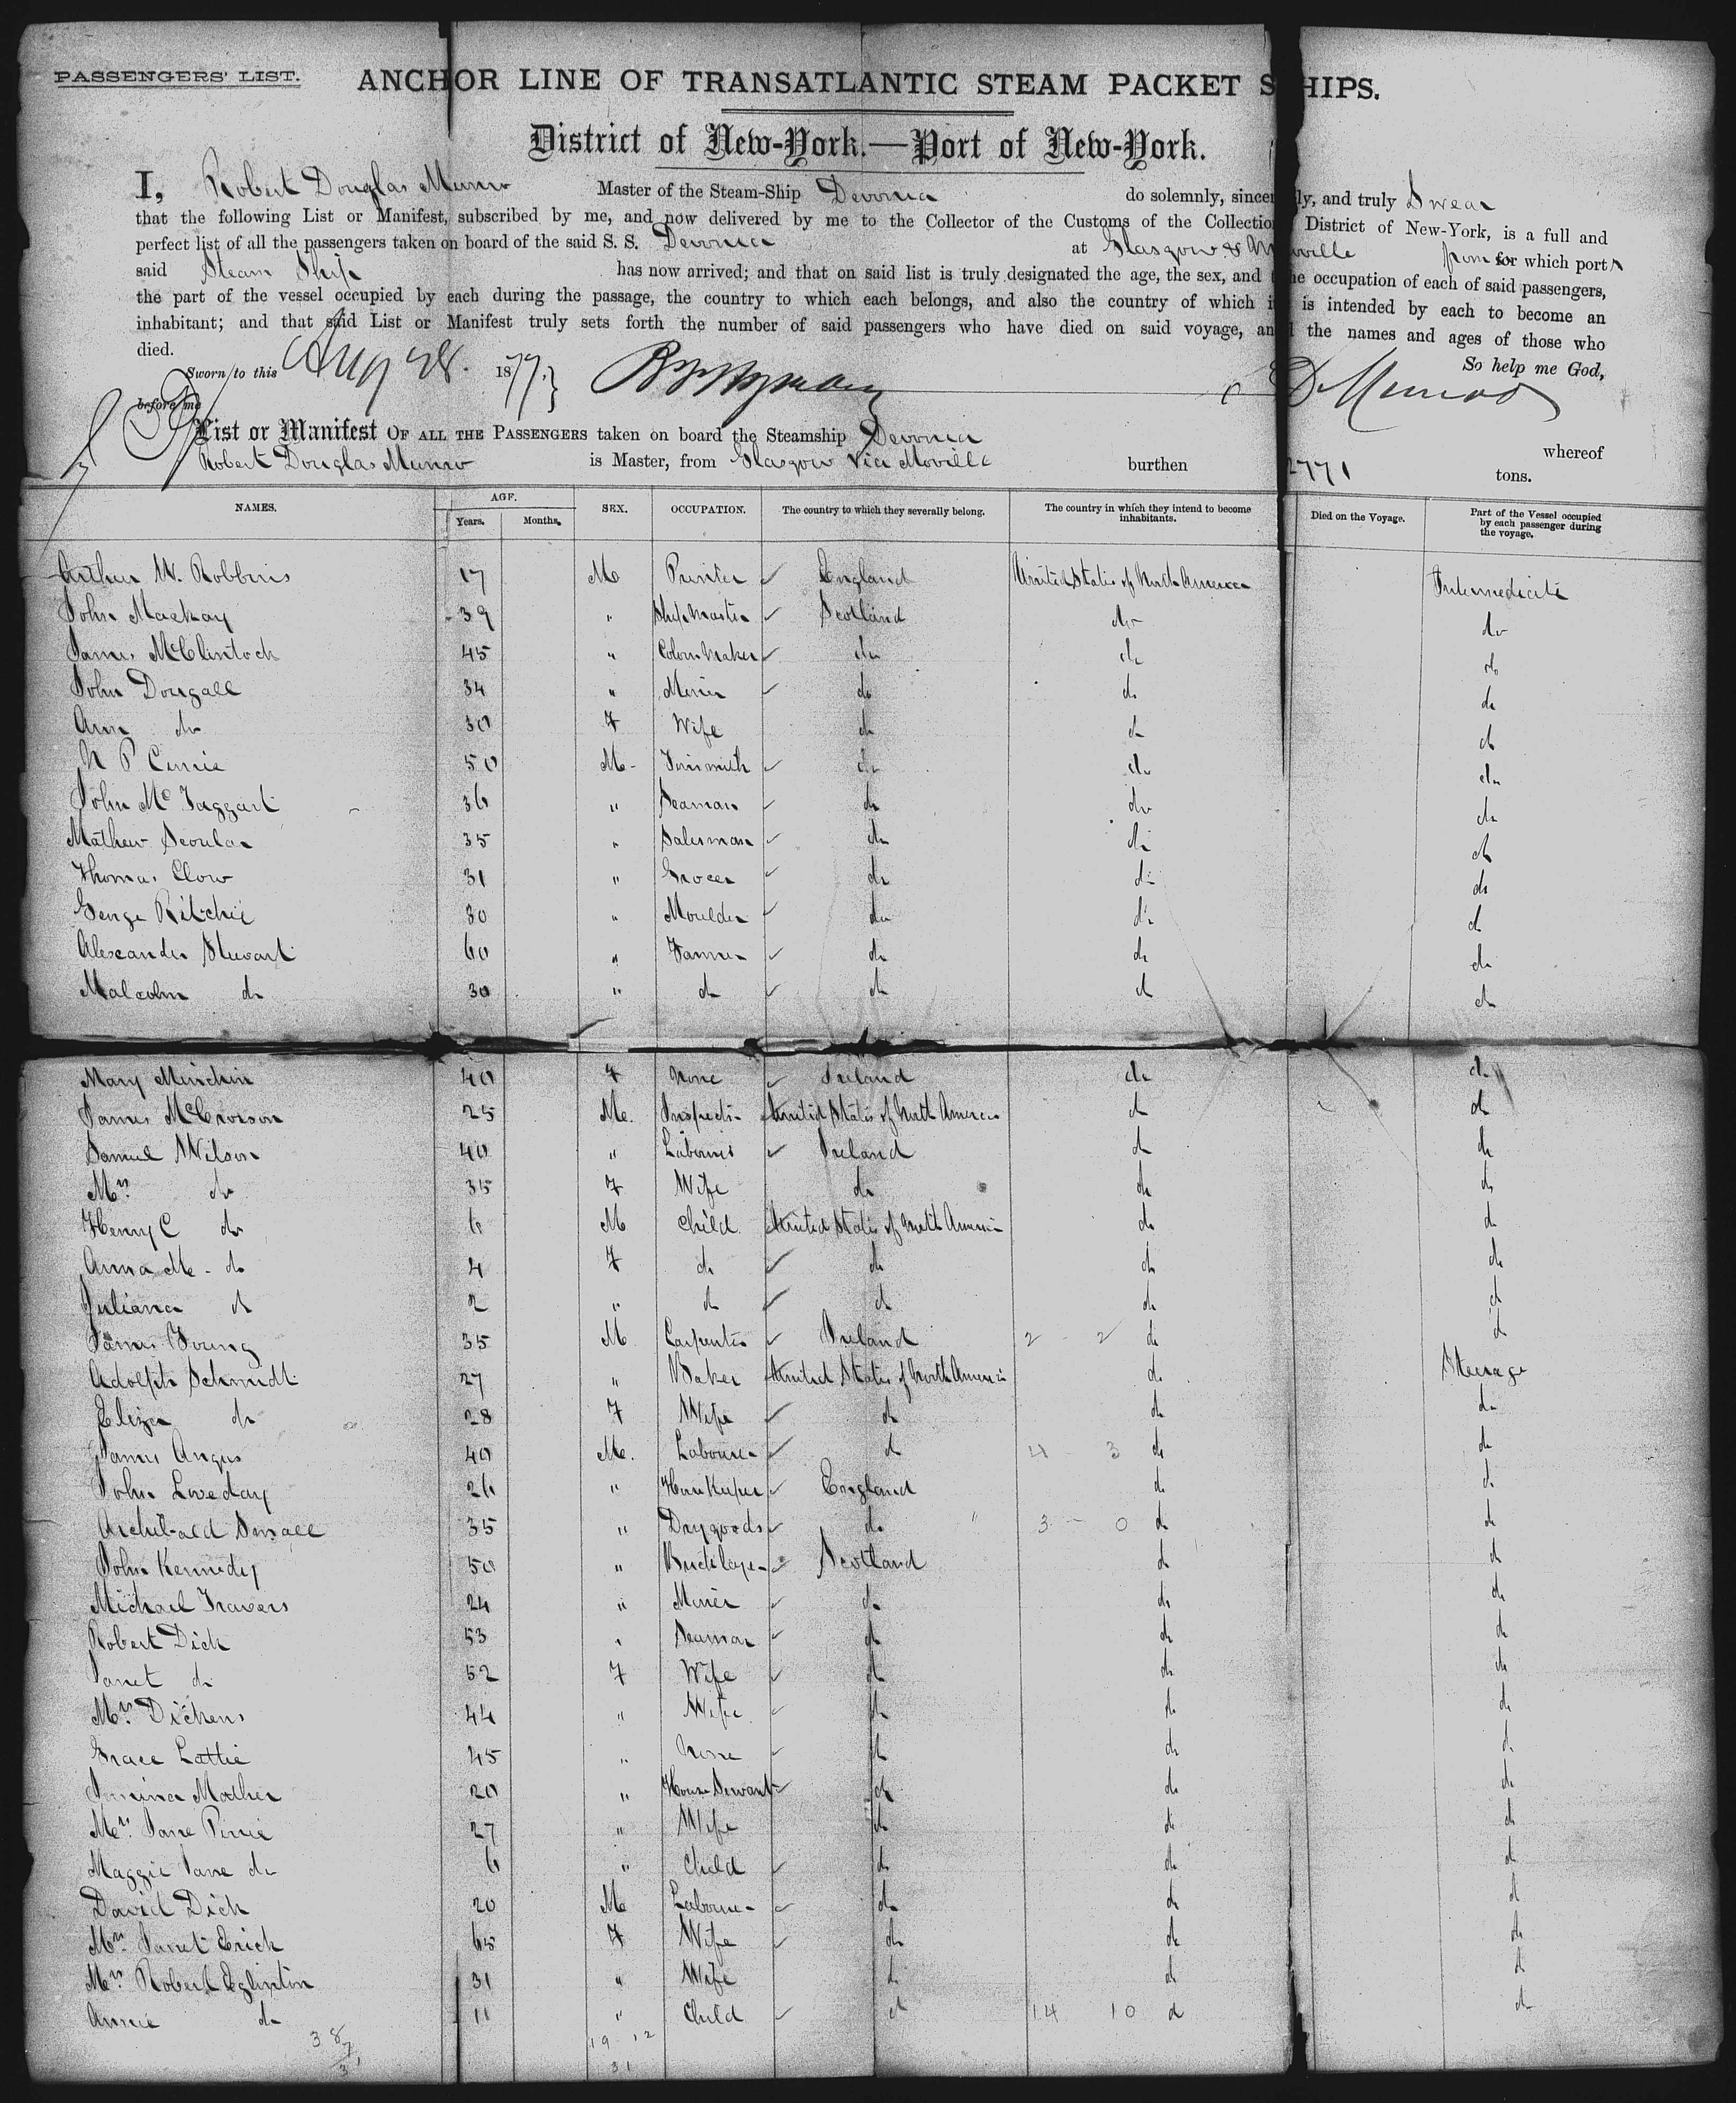 PASSENGERS' LIST. ANCHOR LINE OF TRANSATLANTIC STEAM PACKET SHIPS.
District of New-York.—Port of New-York.
I, Robert Douglas Munro Master of the Steam-Ship Devonia do solemnly, sincerely, and truly Swear
that the following List or Manifest, subscribed by me, and now delivered by me to the Collector of the Customs of the Collection District of New-York, is a full and
perfect list of all the passengers taken on board of the said S. S. Devonia at Glasgow & Moville from for which port
said Steam Ship has now arrived; and that on said list is truly designated the age, the sex, and the occupation of each of said passengers,
the part of the vessel occupied by each during the passage, the country to which each belongs, and also the country of which it is intended by each to become an
inhabitant; and that said List or Manifest truly sets forth the number of said passengers who have died on said voyage, and the names and ages of those who
died. So help me God,
Sworn to this Aug 28. 1877. R D Munro
before me
List or Manifest OF ALL THE PASSENGERS taken on board the Steamship Devonia whereof
Robert Douglas Munro is Master, from Glasgow Via Moville burthen 2771 tons.
NAMES. AGE. Years. Months. SEX. OCCUPATION. The country to which they severally belong. The country in which they intend to become inhabitants. Died on the Voyage. Part of the Vessel occupied by each passenger during the voyage.
Arthur W. Robbins 17 M Printer England United States of North America Intermediate
John Mackay 39 " Ship Master Scotland do do
James McClintock 45 " Colour Maker do do do
John Dougall 34 " Miner do do do
Ann do 30 F Wife do do do
N P Currie 50 M Tinsmith do do do
John McTaggart 36 " Seaman do do do
Mathew Scoular 35 " Salesman do do do
Thomas Clow 31 " Grocer do do do
George Ritchie 30 " Moulder do do do
Alexander Stewart 60 " Farmer do do do
Malcolm do 30 " do do do do
Mary Minchin 40 F None Ireland do do
James McCrorson 25 M. United States of North America do do
Samuel Wilson 40 " Labourer Ireland do do
Mrs. do 35 F Wife do do do
Henry C do 6 M Child United States of North America do do
Anna M. do 4 F do do do do
Juliana do 2 " do do do do
James Young 35 M Carpenter Ireland 2 - 2 do do
Adolph Schmidt 27 " Baker United States of North America do Steerage
Eliza do 28 F Wife do do do
James Angus 40 M. Labourer do 4 3 do do
John Loveday 26 " England do do
Archibald Small 35 " Drygoods do 3 - 0 do do
John Kennedy 50 " Bricklayer Scotland do do
Michael Travers 24 " Miner do do do
Robert Dick 53 " Seaman do do do
Janet do 52 F Wife do do do
Mrs. Dickens 44 " Wife do do do
Grace Lattie 45 " None do do do
Jemima Mather 20 " House Servant do do do
Mrs. Jane Pirrie 27 " Wife do do do
Maggie Jane do 6 " Child do do do
David Dick 20 M Labourer do do do
Mrs. Janet Erick 65 F Wife do do do
Mrs. Robert Eglinton 31 " Wife do do do
Annie do 11 " Child do 14 10 do do
38 19 12
7
31 31